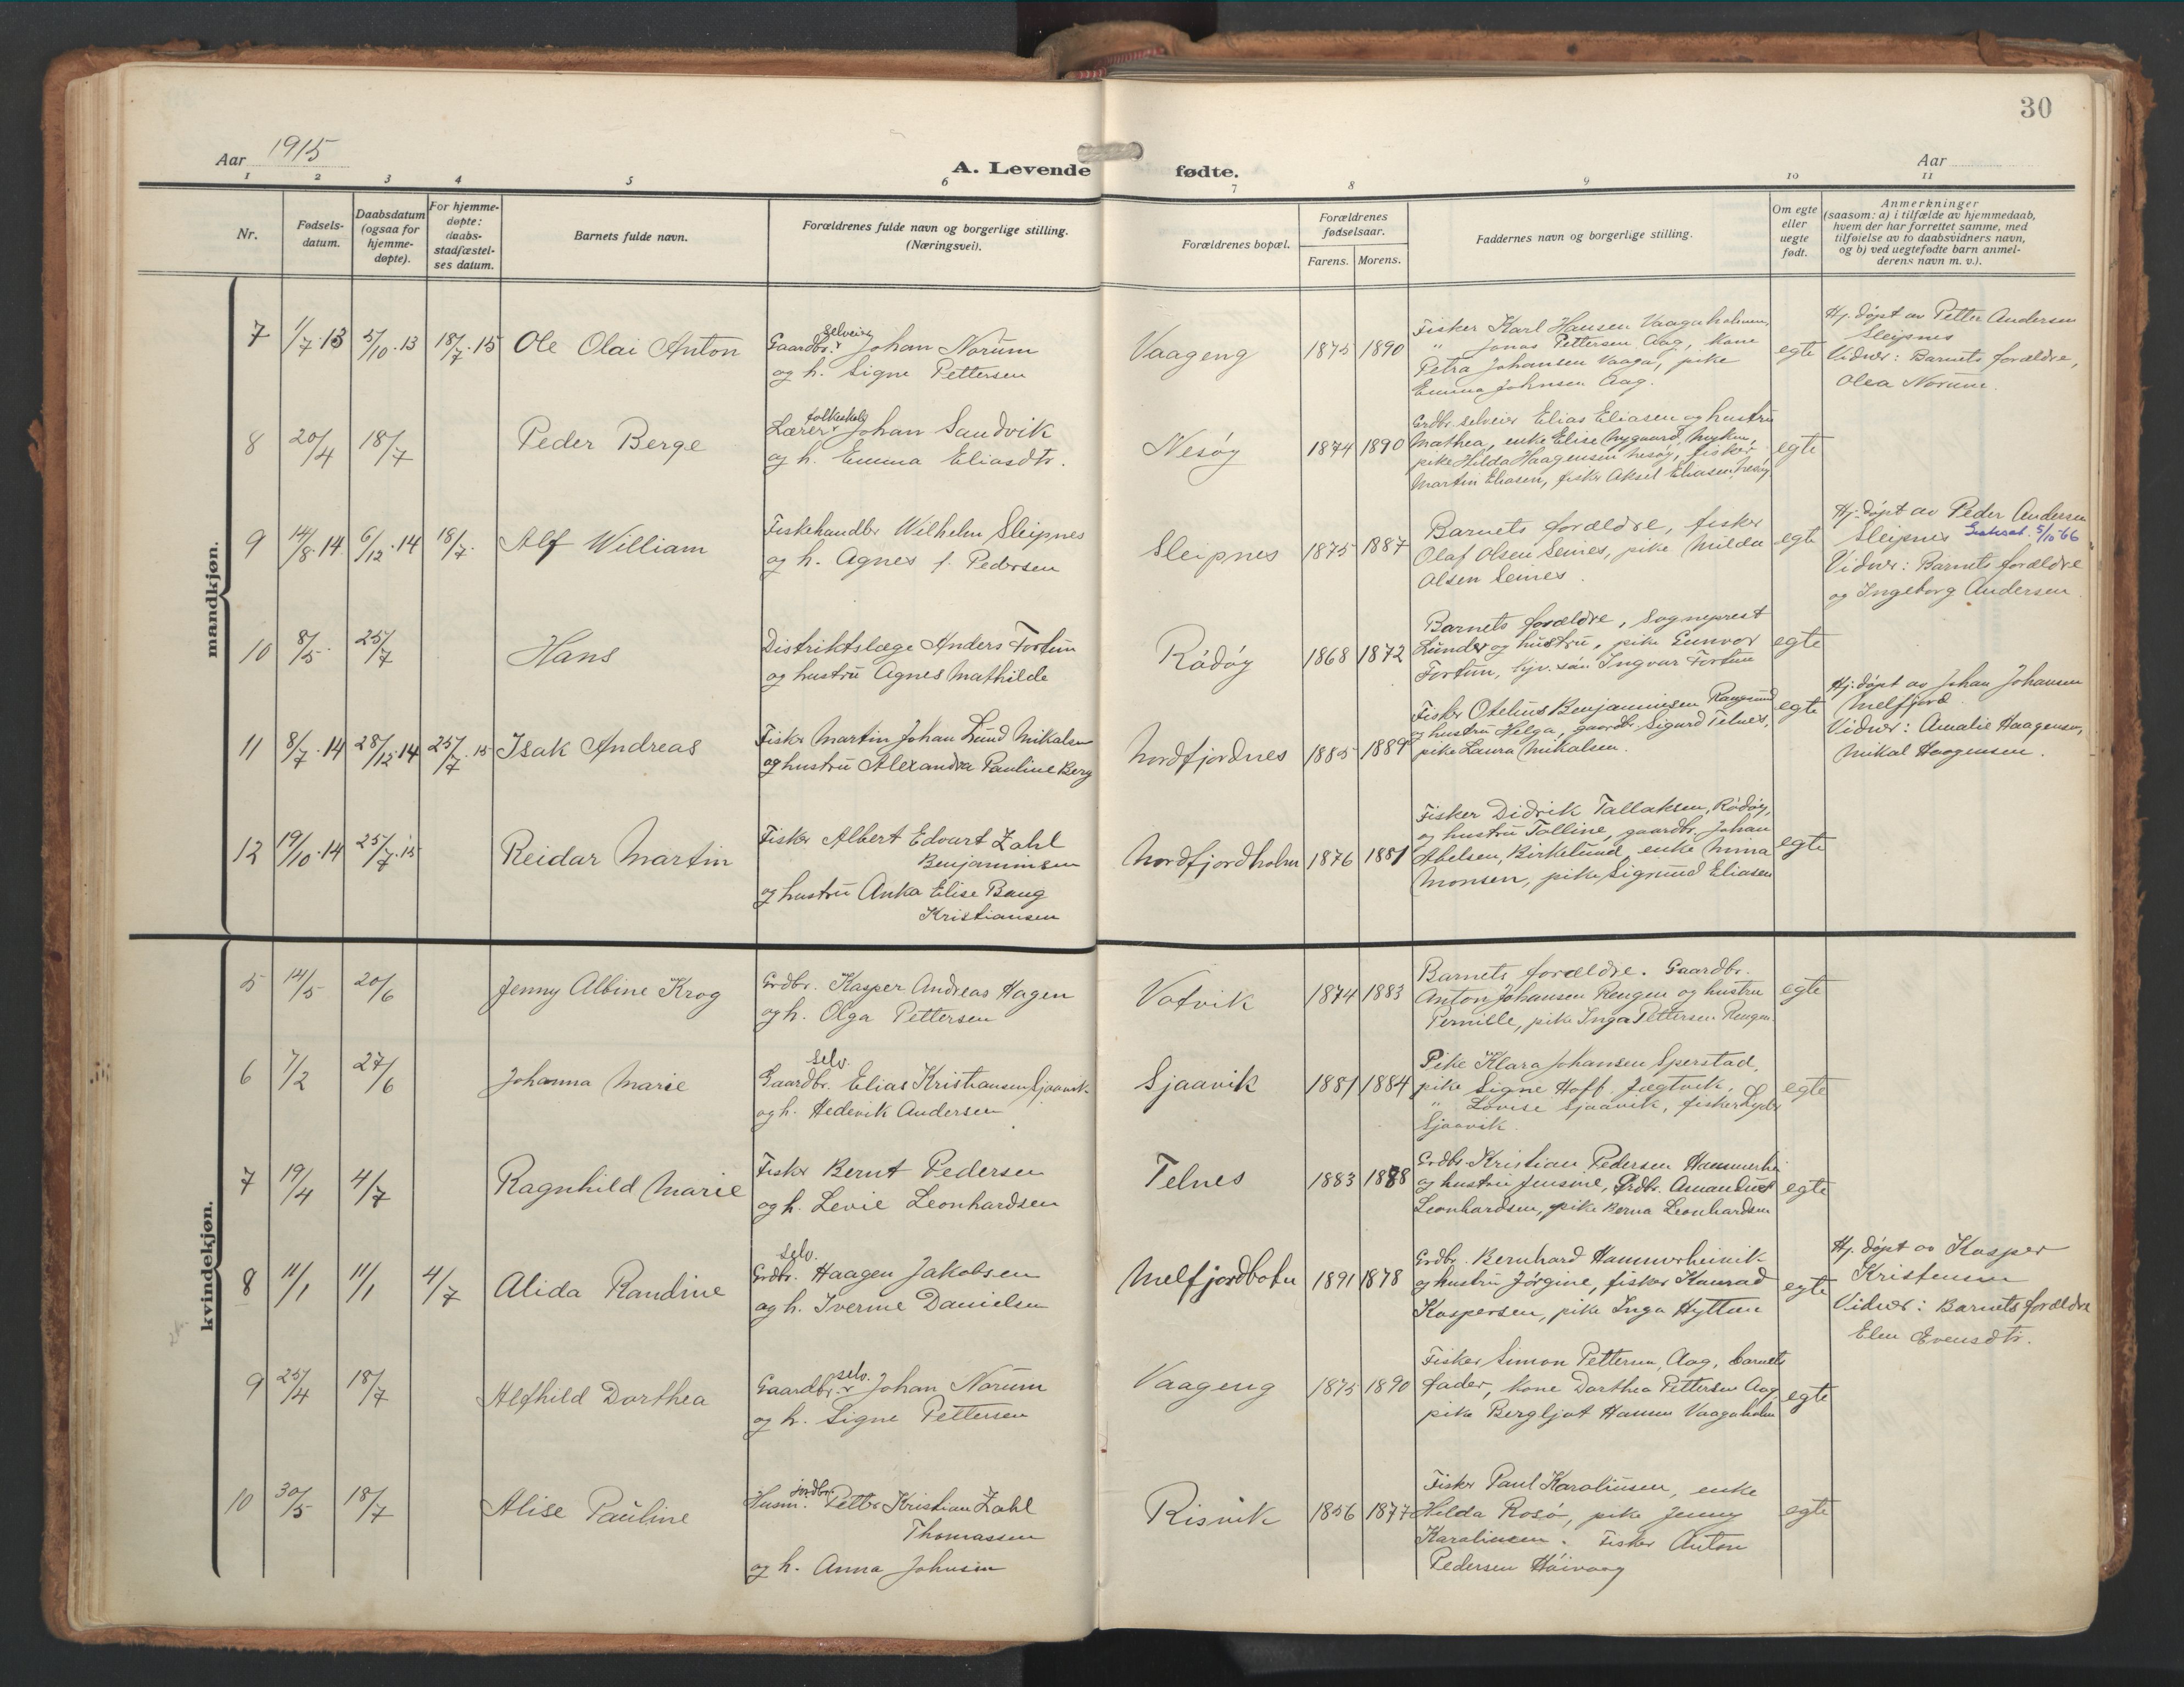 30
Aar 1915
A. Levende fødte.
Aar
1 2 3 4 5 6 7 8 9 10 11
Nr.
Fødsels-
datum.
Daabsdatum
(ogsaa for
hjemme-
døpte).
For hjemme-
døpte:
daabs-
stadfæstel-
ses datum.
Barnets fulde navn.
Forældrenes fulde navn og borgerlige stilling.
(Næringsvei).
Forældrenes bopæl.
Forældrenes
fødselsaar.
Farens. Morens.
Faddernes navn og borgerlige stilling.
Om egte
eller
uegte
født.
Anmerkninger
(saasom: a) i tilfælde av hjemmedaab,
hvem der har forrettet samme, med
tilføielse av to daabsvidners navn,
og b) ved uegtefødte barn anmel-
derens navn m. v.).
mandkjøn.
7 1/7.13 5/10.13 18/7.15 Ole Olai Anton
selveier
Gaardbr. Johan Norum
og h. Signe Pettersen
Vaageng 1875 1890
Fisker Karl Hansen Vaagaholmen,
" Jonas Pettersen Aag, kone
Petra Johansen Vaaga, pike
Emma Johnsen Aag.
egte
Hj. døpt av Petter Andersen
Sleipnes
Vidner: Barnets forældre,
Olea Norum.
8 20/4 18/7 Peder Berge
folkeskole
Lærer Johan Sandvik
og h. Emma Eliasdtr.
Nesøy 1874 1890
Grdbr. selveier Elias Eliasen og hustru
Mathea, enke Elise Nygaard, Myken,
pike Hilda Haagensen Nesøy, fisker
Martin Eliasen, fisker Aksel Eliasen Nesøy
egte
9 14/8.14 6/12.14 18/7. Alf William
Fiskehandler Wilhelm Sleipnes
og h. Agnes f. Pedersen
Sleipnes 1875 1887
Barnets forældre, fisker
Olaf Olsen Seines, pike Milda
Olsen Seines.
egte
Hj. døpt av Peder Andersen
Sleipnes 5/10-66
Vidner: Barnets forældre
og Ingeborg Andersen.
10 8/5. 25/7 Hans
Distriktslæge Anders Fortun
og hustru Agnes Mathilde
Rødøy 1868 1872
Barnets forældre, Sogneprest
Lunder og hustru, pike Gunvor
Fortun, søn Ingvar Fortun
egte
11 8/7.14 28/12.14 25/7.15 Isak Andreas
Fisker Martin Johan Lund Mikalsen
og hustru Alexandra Pauline Berg
Nordfjordnes 1885 1889
Fisker Otelius Benjaminsen Rangsund
og hustru Helga, gaardbr. Sigurd Telnes,
pike Laura Mikalsen.
egte
Hj. døpt av Johan Johansen
Melfjord
Vidner: Amalie Haagensen,
Mikal Haagensen.
12 19/10.14 25/7.15 Reidar Martin
Fisker Albert Edvart Zahl
Benjaminsen
og hustru Anka Elise Bang
Kristiansen
Nordfjordholm 1876 1881
Fisker Didrik Tallaksen, Rødøy,
og hustru Talline, gaardbr. Johan
Abelsen, Birkelund, enke Mina
Monsen, pike Sigrund Eliasen
egte
kvindekjøn.
5 14/5 20/6 Jenny Albine Krog
Grdbr. Kasper Andreas Hagen
og h. Olga Pettersen
Vatvik 1874 1883
Barnets forældre. Gaardbr.
Anton Johansen Rengen og hustru
Pernille, pike Inga Pettersen Rengen.
egte
6 7/2 27/6 Johanna Marie
selv.
Gaardbr. Elias Kristiansen Sjaavik
og h. Hedevik Andersen
Sjaavik 1881 1884
Pike Klara Johansen Sperstad,
pike Signe Hoff, Jægtvik,
" Lovise Sjaavik, fisker Lyder
Sjaavik.
egte
7 19/4 4/7 Ragnhild Marie
Fisker Bernt Pedersen
og h. Levie Leonhardsen
Telnes 1883 1888
Grdbr. Kristian Pedersen
og hustru Jensine, Grdbr. Amandus
Leonhardsen, pike Berna Leonhardsen
egte
8 11/1 11/1 4/7 Alida Randine
selv.
Grdbr. Haagen Jakobsen
og h. Iverine Danielsen
Melfjordbotn 1891 1878
Grdbr. Bernhard Hammerheimvik
og hustru Jørgine, fisker Konrad
Kaspersen, pike Inga Hytten
egte
Hj. døpt av Kasper
Kristensen
Vidner: Barnets forældre
Elen Evensdtr.
9 25/4 18/7 Alfhild Dorthea
selv.
Gaardbr. Johan Norum
og h. Signe Pettersen
Vaageng 1875 1890
Fisker Simon Pettersen, Aag, barnets
fader, kone Dorthea Pettersen Aag,
pike Bergljot Hansen Vaagaholm
egte
10 30/5 18/7 Alise Pauline
jordbr.
Husm. Petter Kristian Zahl
Thomassen
og h. Anna Johnsen
Risvik 1856 1877
Fisker Paul Karoliussen, enke
Hilda Rosø, pike Jenny
Karoliussen. Fisker Anton
Pedersen Høivaag
egte